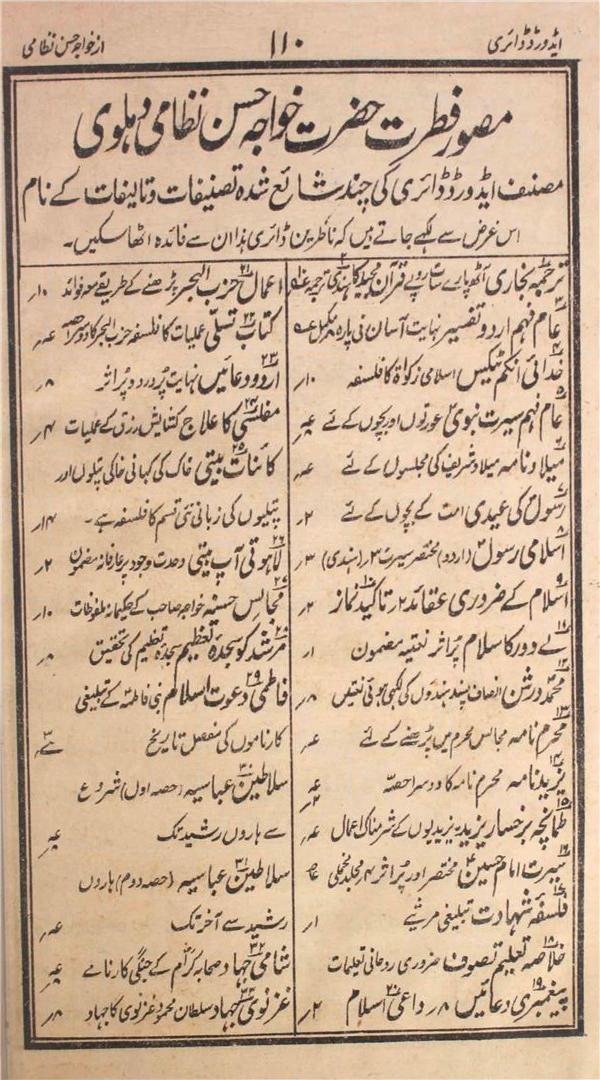 ایڈورڈ ڈائری
۱۱۰
از خواجہ حسن نظامی
مصور فطرت حضرت خواجہ حسن نظامی دہلوی
مصنف ایڈورڈ ڈائری کی چند شائع شدہ تصنیفات و تالیفات کے نام
اس غرض سے لکھے جاتے ہیں کہ ناظرین ڈائری ہذا ان سے فائدہ اٹھا سکیں۔
ترجمہ بخاری آٹھ پارے سات روپے قرآن مجید کا ہندی ترجمہ
عام فہم اردو تفسیر نہایت آسان فی پارہ ۸ر مکمل
خدائی انکم ٹیکس اسلامی زکوٰۃ کا فلسفہ ۱۰ر
عام فہم سیرت نبوی عورتوں اور بچوں کے لئے
میلاد نامہ میلاد شریف کی مجلسوں کے لئے
رسول کی عیدی امت کے بچوں کے لئے ۲ر
اسلامی رسول (اردو) مختصر سیرت ۲ر (ہندی) ۳ر
اسلام کے ضروری عقائد ۲ر تاکید نماز ۲ر
بے دور کا سلام پر اثر نعتیہ مضمون ۱ر
محمد درشن انصاف پسند ہندوں کی لکھی ہوئی نعتیں ۸ر
محرم نامہ مجالس محرم میں پڑھنے کے لئے
یزید نامہ محرم نامہ کا دوسرا حصہ
طمانچہ بر رخسار یزید یزیدیوں کے شرمناک اعمال
سیرت امام حسین مختصر اور پر اثر ۴ر مجلد مخملی
فلسفہ شہادت تبلیغی مرثیے ۱ر
خلاصہ تعلیم تصوف ضروری روحانی تعلیمات
پیغمبری دعائیں ۸ر داعی اسلام ۲ر
اعمال حزب البحر پڑھنے کے طریقے مع فوائد ۱۰ر
کتاب تسلی عملیات کا فلسفہ حزب البحر کا دوسرا حصہ
اردو دعائیں نہایت پر درد و پر اثر ۸ر
مفلسی کا علاج کشایش رزق کے عملیات ۴ر
کائنات بیتی خاک کی کہانی خاکی پتلوں اور
پتلیوں کی زبانی نئی قسم کا فلسفہ ہے۔ ۱۴ر
لاہوتی آپ بیتی وحدت وجود پر عارفانہ مضمون ۲ر
مجالس حسنہ خواجہ صاحب کے حکیمانہ ملفوظات ۱۰ر
مرشد کو سجدہ تعظیم سجدہ تعظیم کی تحقیق ۸ر
فاطمی دعوت اسلام بنی فاطمہ کے تبلیغی
کارناموں کی مفصل تاریخ
سلاطین عباسیہ (حصہ اول) شروع
سے ہاروں رشید تک
سلاطین عباسیہ (حصہ دوم) ہاروں
رشید سے آخر تک
شامی جہاد صحابہ کرام کے جنگی کارنامے
غزنوی جہاد سلطان محمود غزنوی کا جہاد ۸ر